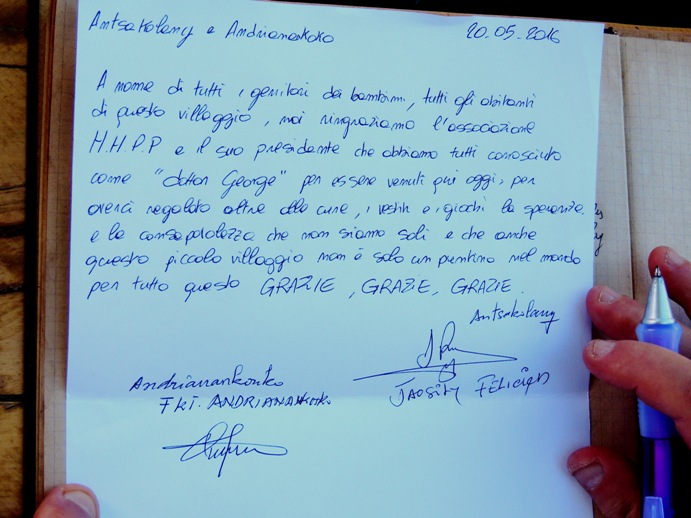 Antsakolany e Andrianankoko 20-05-2016
A nome di tutti i genitori dei bambini, tutti gli abitanti
di questo villaggio, noi ringraziamo l'associazione
H.H.P.P e il suo presidente che abbiamo tutti conosciuto
come "dottor George" per essere venuti qui oggi, per
averci regalato oltre alle cure, i vestiti e i giochi la speranza
e la consapevolezza che non siamo soli e che anche
questo piccolo villaggio non è solo un puntino nel mondo
per tutto questo GRAZIE, GRAZIE, GRAZIE.
Antsakolany
Andrianankonko
FKT. ANDRIANANKONKO
JAOSILY FELICIEN